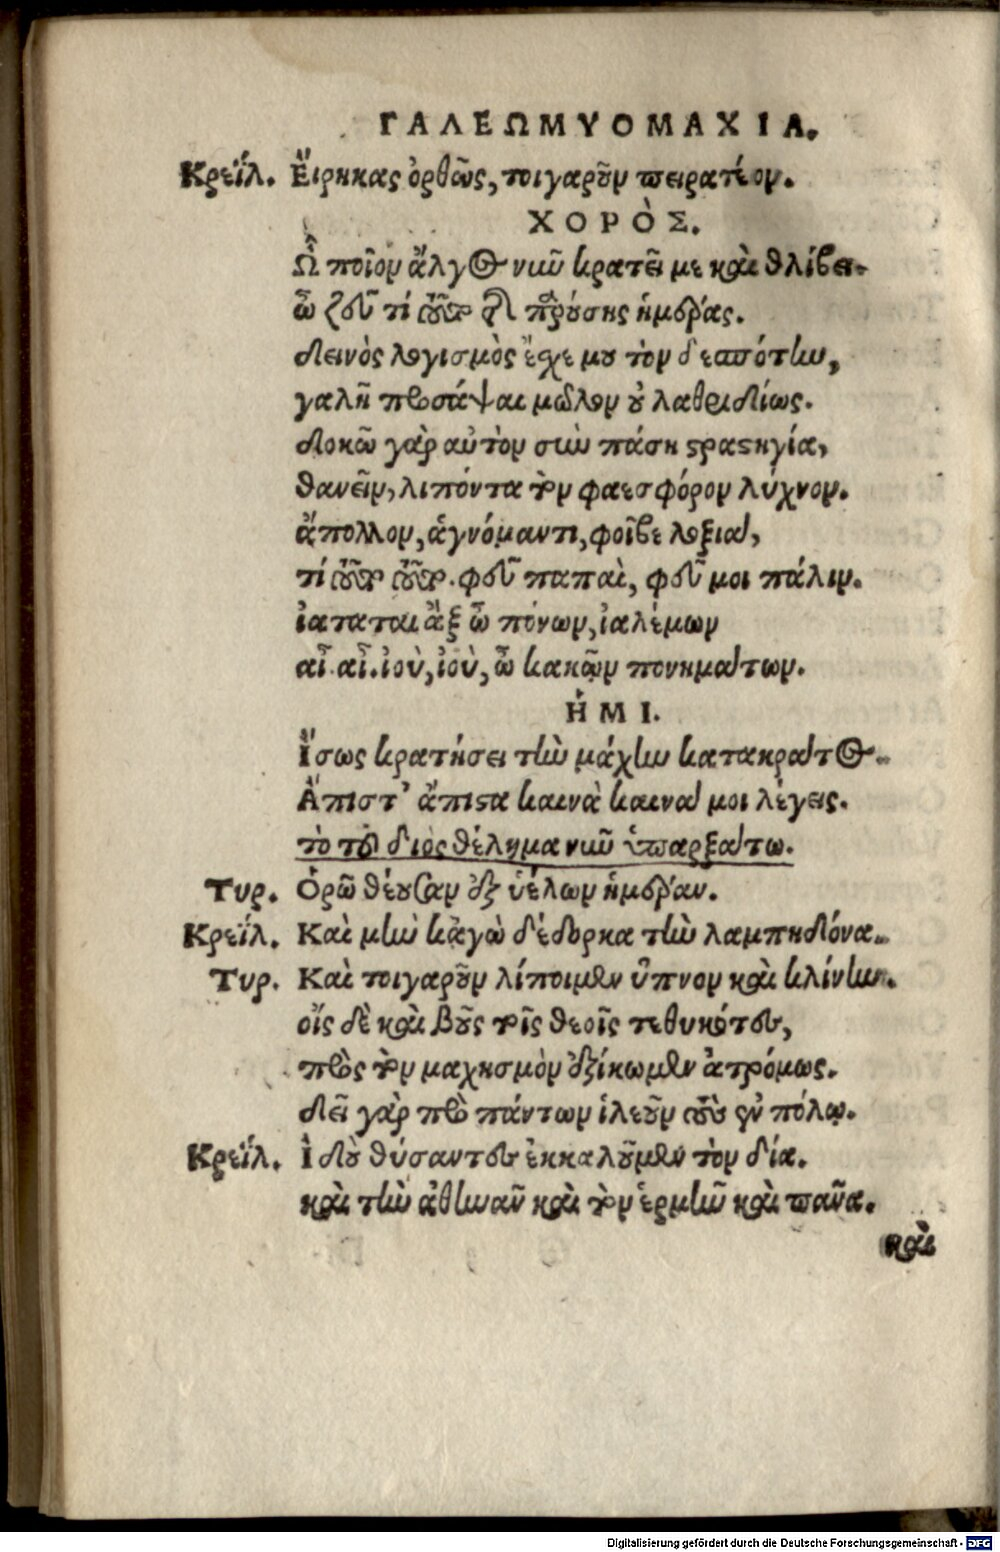 ΓΑΛΕΩΜΥΟΜΑΧΙΑ.
Κρεΐλ. Εἴρηκας ὀρθῶς, τοιγαροῦν πειρατέον.
ΧΟΡῸΣ.
Ὢ ποῖον ἄλγος νιῦ κρατεῖ με καὶ θλίβει.
ὦ ζεῦ τί οὖν τῆς παρούσης ἡμέρας.
δεινὸς λογισμὸς ἔχε μου τὸν δεσπότην,
γαλῆ προσάψαι μῶλον οὐ λαθριδίως.
δοκῶ γὰρ αὐτὸν σὺν πάσῃ στρατηγίᾳ,
θανεῖν, λιπόντα τὸν φαεσφόρον λύχνον.
ἄπολλον, ἁγνόμαντι, φοῖβε λοξία,
τί οὖν οὖν. φεῦ παπαὶ, φεῦ μοι πάλιν.
ἰαταται ἂξ ὦ πόνων, ἰαλέμων
αἶ αἶ. ἰοὺ, ἰοὺ, ὦ κακῶν πονημάτων.
ἩΜΙ.
Ἴσως κρατήσει τὴν μάχην κατακράτος.
Ἄπιστ’ ἄπιστα καινὰ καινά μοι λέγεις.
τὸ τοῦ διὸς θέλημα νῦν ὑπαρξάτω.
Τυρ. Ὁρῶ θέουσαν ἐξ ὑέλων ἡμέραν.
Κρεΐλ. Καὶ μὴν κἀγὼ δέδορκα τὴν λαμπηδόνα.
Τυρ. Καὶ τοιγαροῦν λίποιμεν ὕπνον καὶ κλίνην.
οἶς δὲ καὶ βοῦς τοῖς θεοῖς τεθυκότες,
πρὸς τὸν μαχησμὸν ἐξίκωμεν ἀτρόμως.
δεῖ γὰρ πρὸ πάντων ἱλεοῦν τοὺς ἐν πόλῳ.
Κρεΐλ. Ἰδοὺ θύσαντες ἐκκαλοῦμεν τὸν δία.
καὶ τὴν ἀθηνᾶν καὶ τὸν ἑρμῆν καὶ πᾶνα.
καὶ
Digitalisierung gefördert durch die Deutsche Forschungsgemeinschaft - DFG